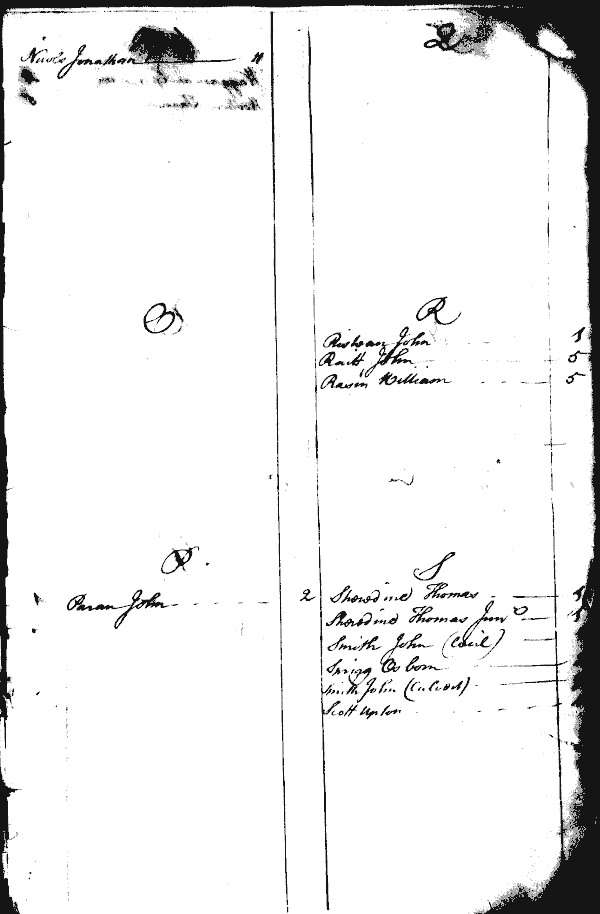 Nicols Jonathan 11
O
P
Paran John 2
Q
R
Risteau John 1
Raitt John 5
Rasin William 5
S
Sheredine Thomas 1
Sheredine Thomas Junr 1
Smith John (Cecil)
Sprigg Osborn
Smith John (Calvert)
Scott Upton